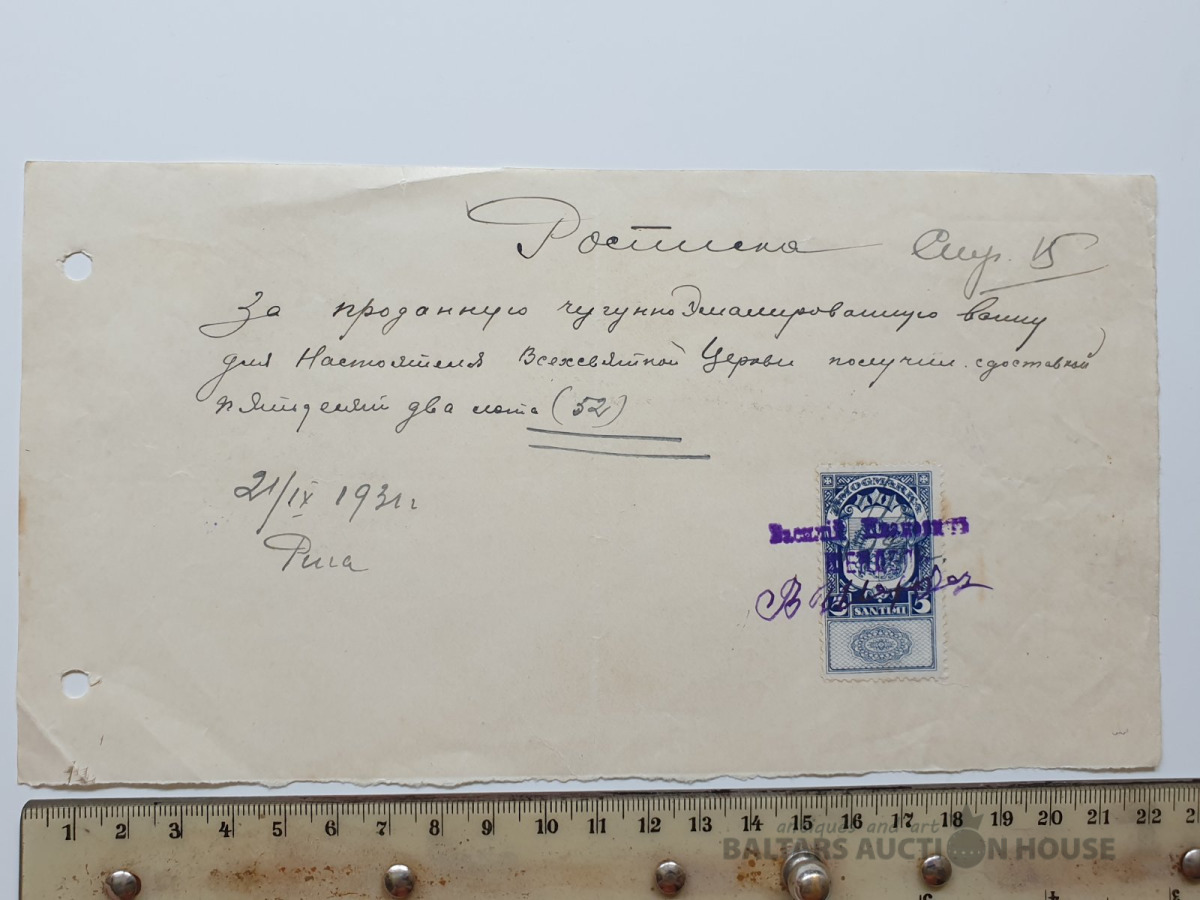 Росписка Стр. 15
За проданную чугунно эмалированную ванну
для Настоятеля Всехсвятной Церкви получил с доставкой
пятьдесят два лата (52)
21/IX 1931 г
Рига
ZĪMOGMARKA
Василий Иванович
5 SANTIMI 5
1 2 3 4 5 6 7 8 9 10 11 12 13 14 15 16 17 18 19 20 21 22 2
antiques and art
BALTARS AUCTION HOUSE